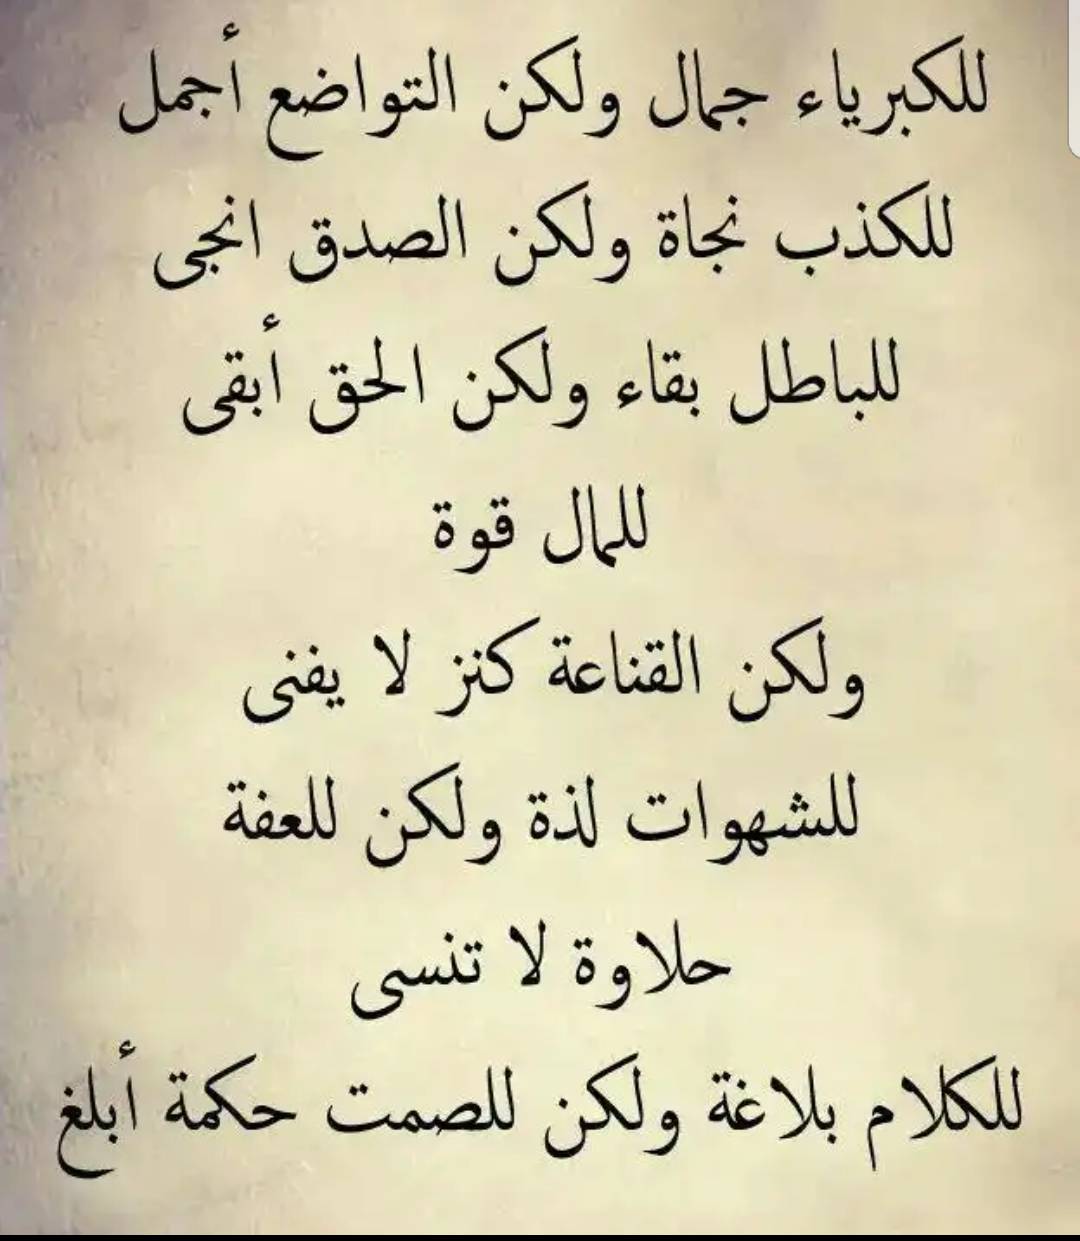 للكبرياء جمال ولكن التواضع أجمل
للكذب نجاة ولكن الصدق انجى
للباطل بقاء ولكن الحق أبقى
للمال قوة
ولكن القناعة كنز لا يفنى
للشهوات لذة ولكن للعفة
حلاوة لا تنسى
للكلام بلاغة ولكن للصمت حكمة أبلغ